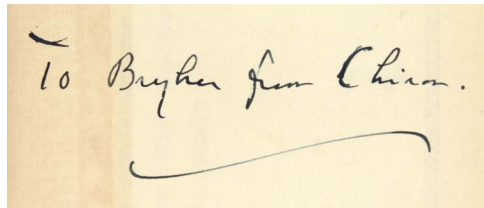 To Bryher from Chiron.